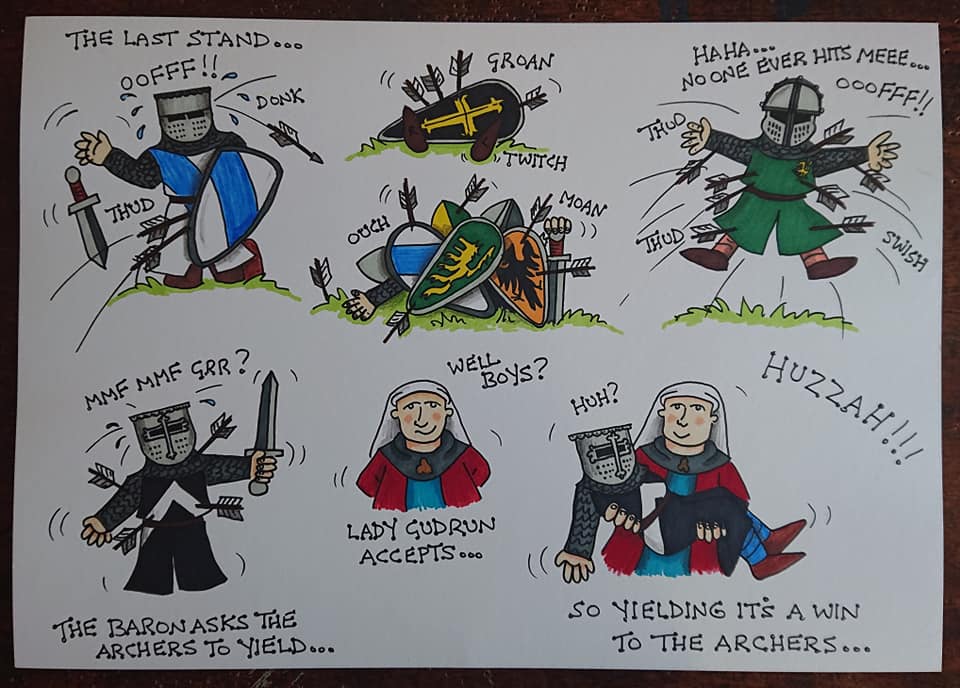 THE LAST STAND...
OOFFF!!
DONK
THUD
GROAN
TWITCH
OUCH
MOAN
HAHA...
NO ONE EVER HITS MEEE...
OOOFFF!!
THUD
THUD
SWISH
MMF MMF GRR?
THE BARON ASKS THE
ARCHERS TO YIELD...
WELL
BOYS?
LADY GUDRUN
ACCEPTS...
HUH?
HUZZAH!!!
SO YIELDING IT'S A WIN
TO THE ARCHERS...